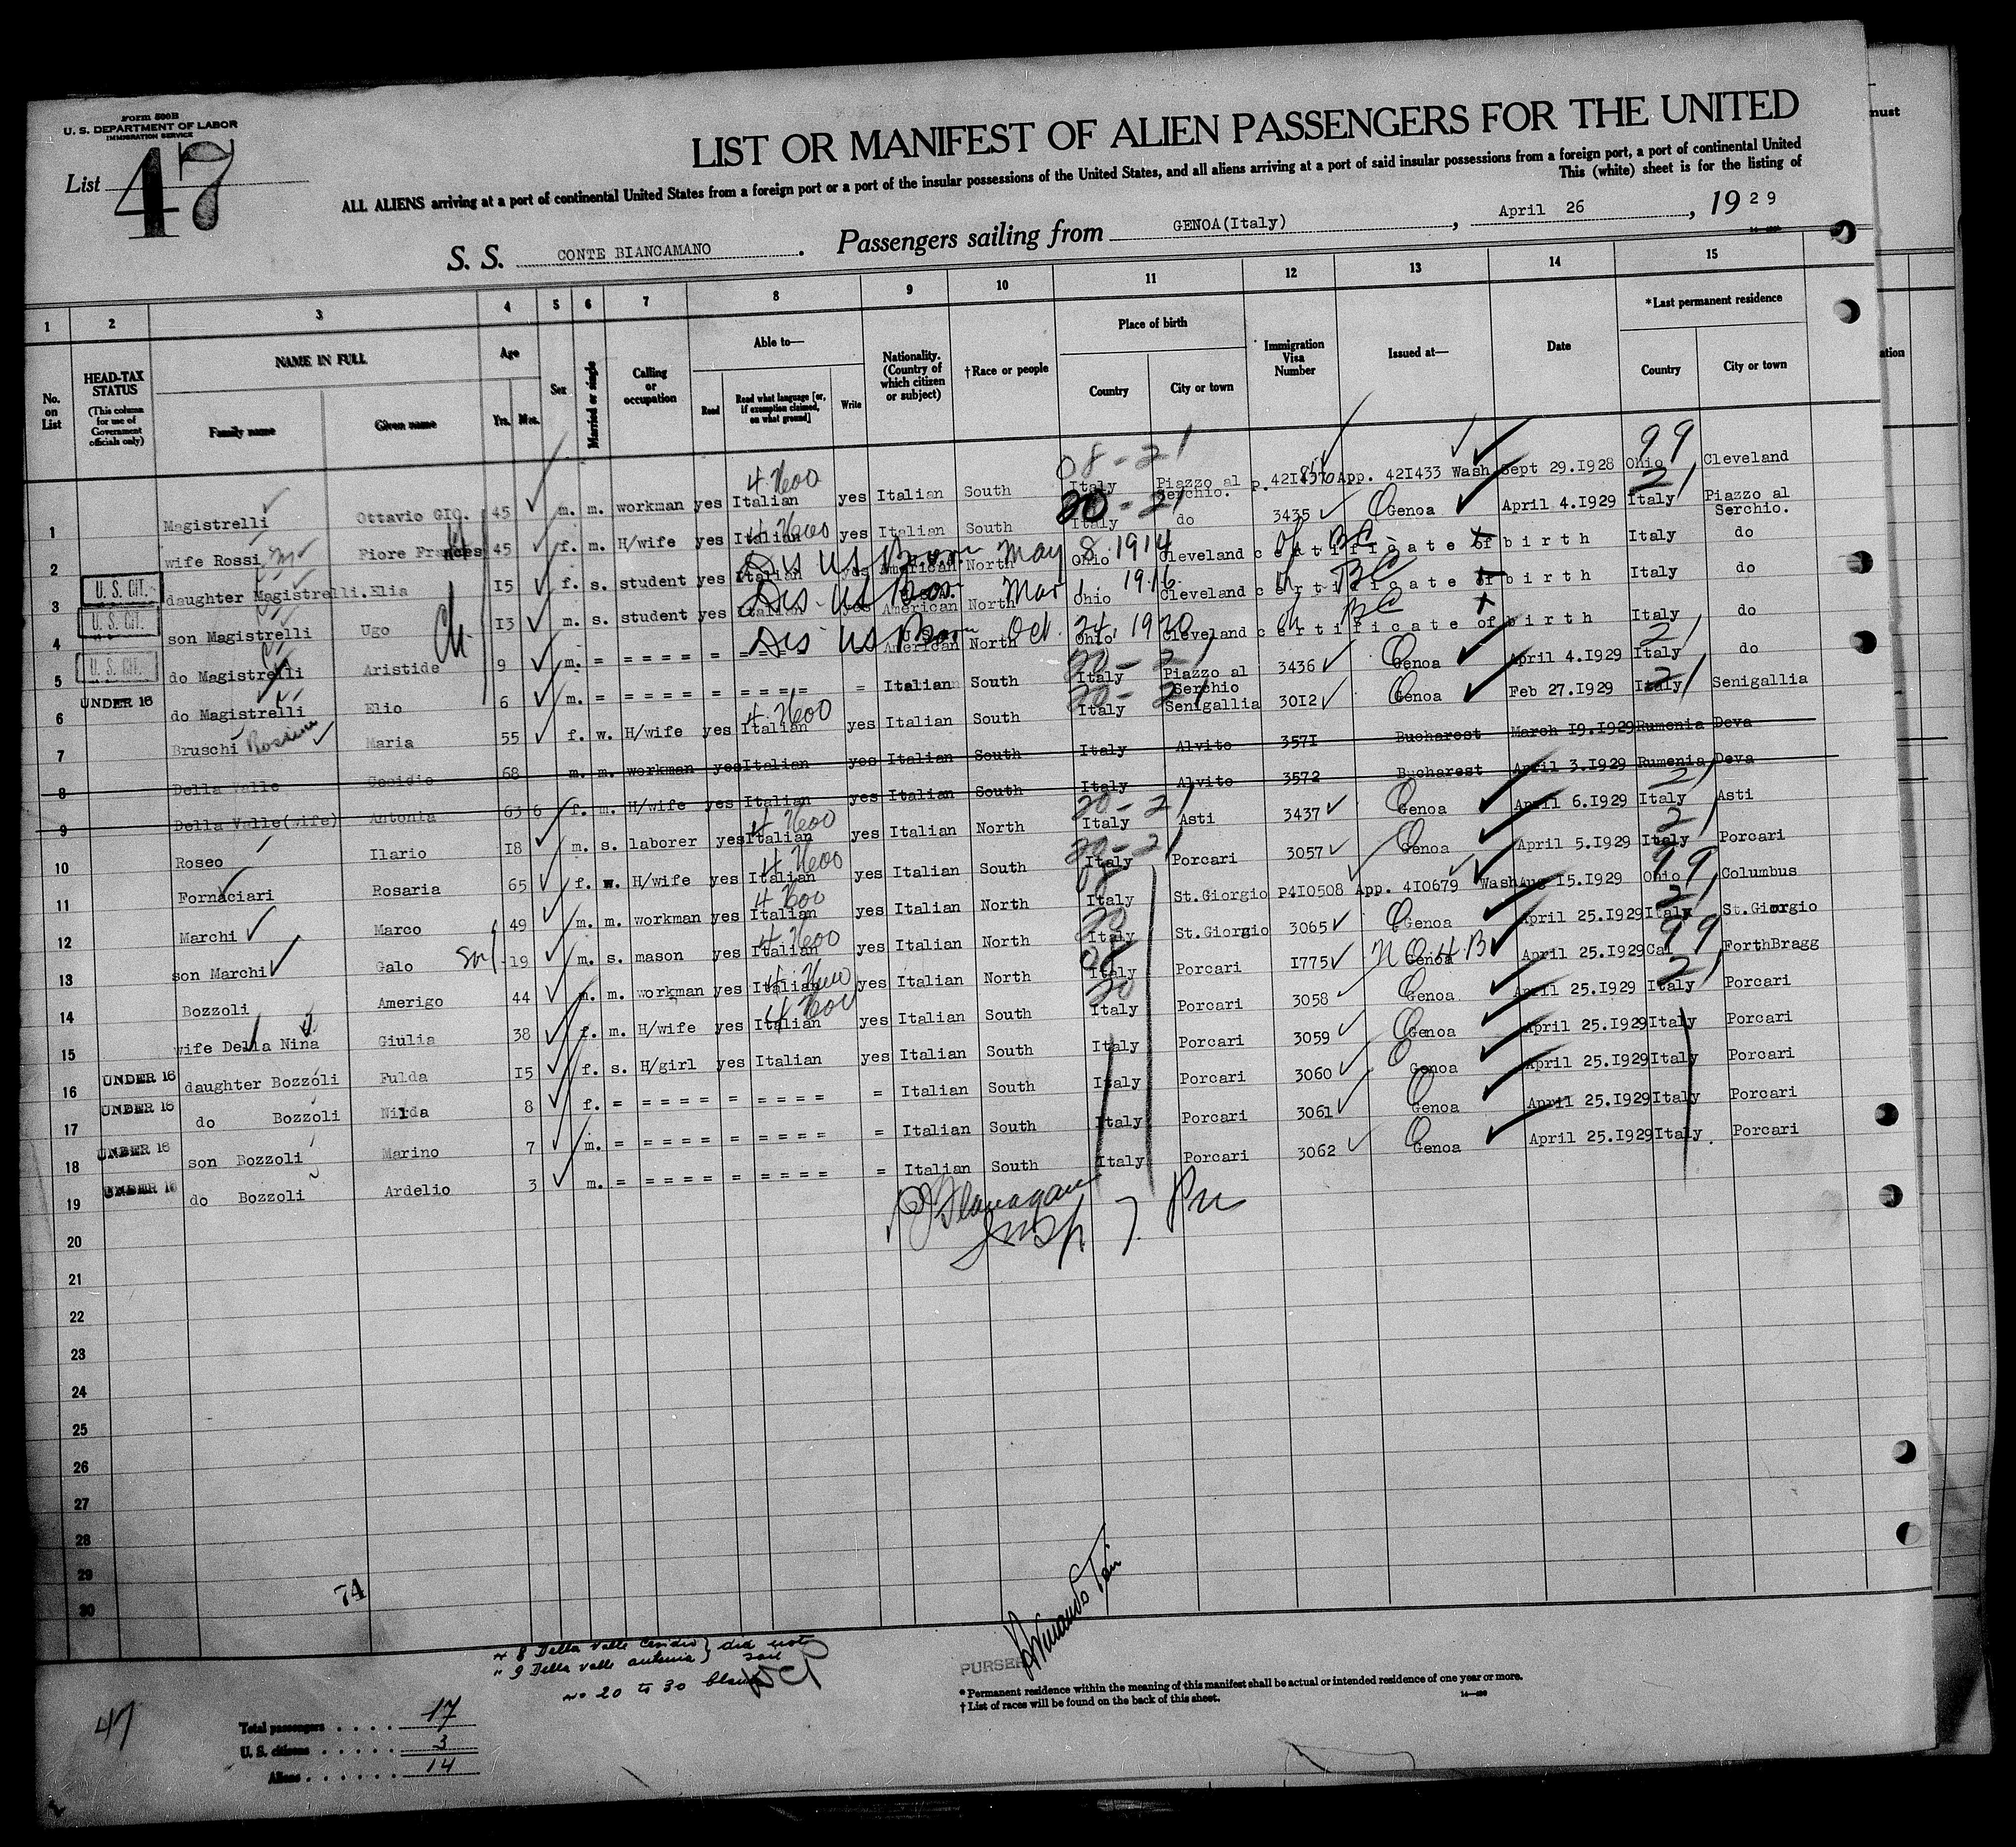 Form 500B
U. S. DEPARTMENT OF LABOR
IMMIGRATION SERVICE
List 47
LIST OR MANIFEST OF ALIEN PASSENGERS FOR THE UNITED
ALL ALIENS arriving at a port of continental United States from a foreign port or a port of the insular possessions of the United States, and all aliens arriving at a port of said insular possessions from a foreign port, a port of continental United
This (white) sheet is for the listing of
S. S. CONTE BIANCAMANO. Passengers sailing from GENOA(Italy), April 26, 1929
must
ation
1 2 3 4 5 6 7 8 9 10 11 12 13 14 15
No. on List
HEAD-TAX STATUS (This column for use of Government officials only)
NAME IN FULL Family name Given name
Age Yrs. Mos.
Sex
Married or single
Calling or occupation
Able to— Read Read what language [or, if exemption claimed, on what ground] Write
Nationality. (Country of which citizen or subject)
†Race or people
Place of birth Country City or town
Immigration Visa Number
Issued at—
Date
*Last permanent residence Country City or town
1 Magistrelli Ottavio GIO. 45 m. m. workman yes Italian yes Italian South 08-21 Italy Piazzo al Serchio. App. 421433 Wash Sept 29.I928 Ohio 99 Cleveland
2 wife Rossi Fiore Frances 45 f. m. H/wife yes Italian yes Italian South 20-21 Italy do 3435 Genoa April 4.I929 Italy 21 Piazzo al Serchio.
3 U. S. CIT. daughter Magistrelli. Elia I5 f. s. student yes Italian yes American North US Born May 8. 1914 Ohio Cleveland certificate of birth BC Italy do
4 U. S. CIT. son Magistrelli Ugo I3 m. s. student yes Italian yes American North US Born Mar 1. 1916 Ohio Cleveland certificate of birth BC Italy do
5 U. S. CIT. do Magistrelli Aristide 9 m. = = = = = = = = = = American North US Born Oct. 24, 1920 Ohio Cleveland certificate of birth BC Italy do
6 UNDER 16 do Magistrelli Elio 6 m. = = = = = = = = = = = Italian South 20-21 Italy Piazzo al Serchio 3436 Genoa April 4.I929 Italy 21 do
7 Bruschi Maria 55 f. w. H/wife yes Italian yes Italian South 20-21 Italy Senigallia 30I2 Genoa Feb 27.I929 Italy 21 Senigallia
8 Della Valle Cesidio 68 m. m. workman yes Italian yes Italian South Italy Alvito 357I Bucharest March I9.I929 Rumenia Deva
9 Della Valle(wife) Antonia 63 6 f. m. H/wife yes Italian yes Italian South Italy Alvito 3572 Bucharest April 3.I929 Rumenia Deva
10 Roseo Ilario I8 m. s. laborer yes Italian yes Italian North 20-21 Italy Asti 3437 Genoa April 6.I929 Italy 21 Asti
11 Fornaciari Rosaria 65 f. w. H/wife yes Italian yes Italian South 20-21 Italy Porcari 3057 Genoa April 5.I929 Italy 21 Porcari
12 Marchi Marco 49 m. m. workman yes Italian yes Italian North Italy St.Giorgio P4I0508 App. 4I0679 Wash Aug I5.I929 Ohio 99 Columbus
13 son Marchi Galo I9 m. s. mason yes Italian yes Italian North Italy St.Giorgio 3065 Genoa April 25.I929 Italy 21 St.Giorgio
14 Bozzoli Amerigo 44 m. m. workman yes Italian yes Italian North Italy Porcari I775 Genoa April 25.I929 Cal 99 ForthBragg
15 wife Della Nina Giulia 38 f. m. H/wife yes Italian yes Italian South 20 Italy Porcari 3058 Genoa April 25.I929 Italy 21 Porcari
16 UNDER 16 daughter Bozzoli Fulda I5 f. s. H/girl yes Italian yes Italian South Italy Porcari 3059 Genoa April 25.I929 Italy Porcari
17 UNDER 16 do Bozzoli Nilda 8 f. = = = = = = = = = = = Italian South Italy Porcari 3060 Genoa April 25.I929 Italy Porcari
18 UNDER 16 son Bozzoli Marino 7 m. = = = = = = = = = = = Italian South Italy Porcari 306I Genoa April 25.I929 Italy Porcari
19 UNDER 16 do Bozzoli Ardelio 3 m. = = = = = = = = = = = Italian South Italy Porcari 3062 Genoa April 25.I929 Italy Porcari
Flanagan
Insp
20
21
22
23
24
25
26
27
28
29
30
74
8 Della Valle Cesidio } did not
" 9 Della Valle Antonia } sail
No 20 to 30 blank
PURSER
*Permanent residence within the meaning of this manifest shall be actual or intended residence of one year or more.
†List of races will be found on the back of this sheet.
47
Total passengers . . . . 17
U. S. citizens . . . . . 3
Aliens . . . . . . 14